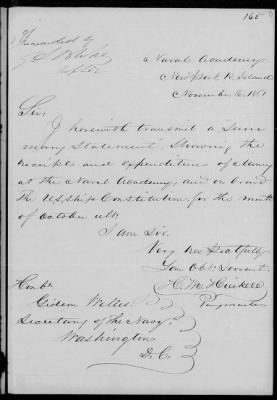 165
Forwarded by
Naval Academy
New Port R. Island
November 16, 1861
Sir,
I herewith transmit a Sum
mary Statement, Showing the
receipts and expenditures of Money
at the Naval Academy, and on board
The U.S. Ship Constitution, for the month
of October ulto
I am Sir
Very Respectfully
Your Obt. Servant
Paymaster
Honble
Gideon Welles
Secretary of the Navy
Washington
D.C.